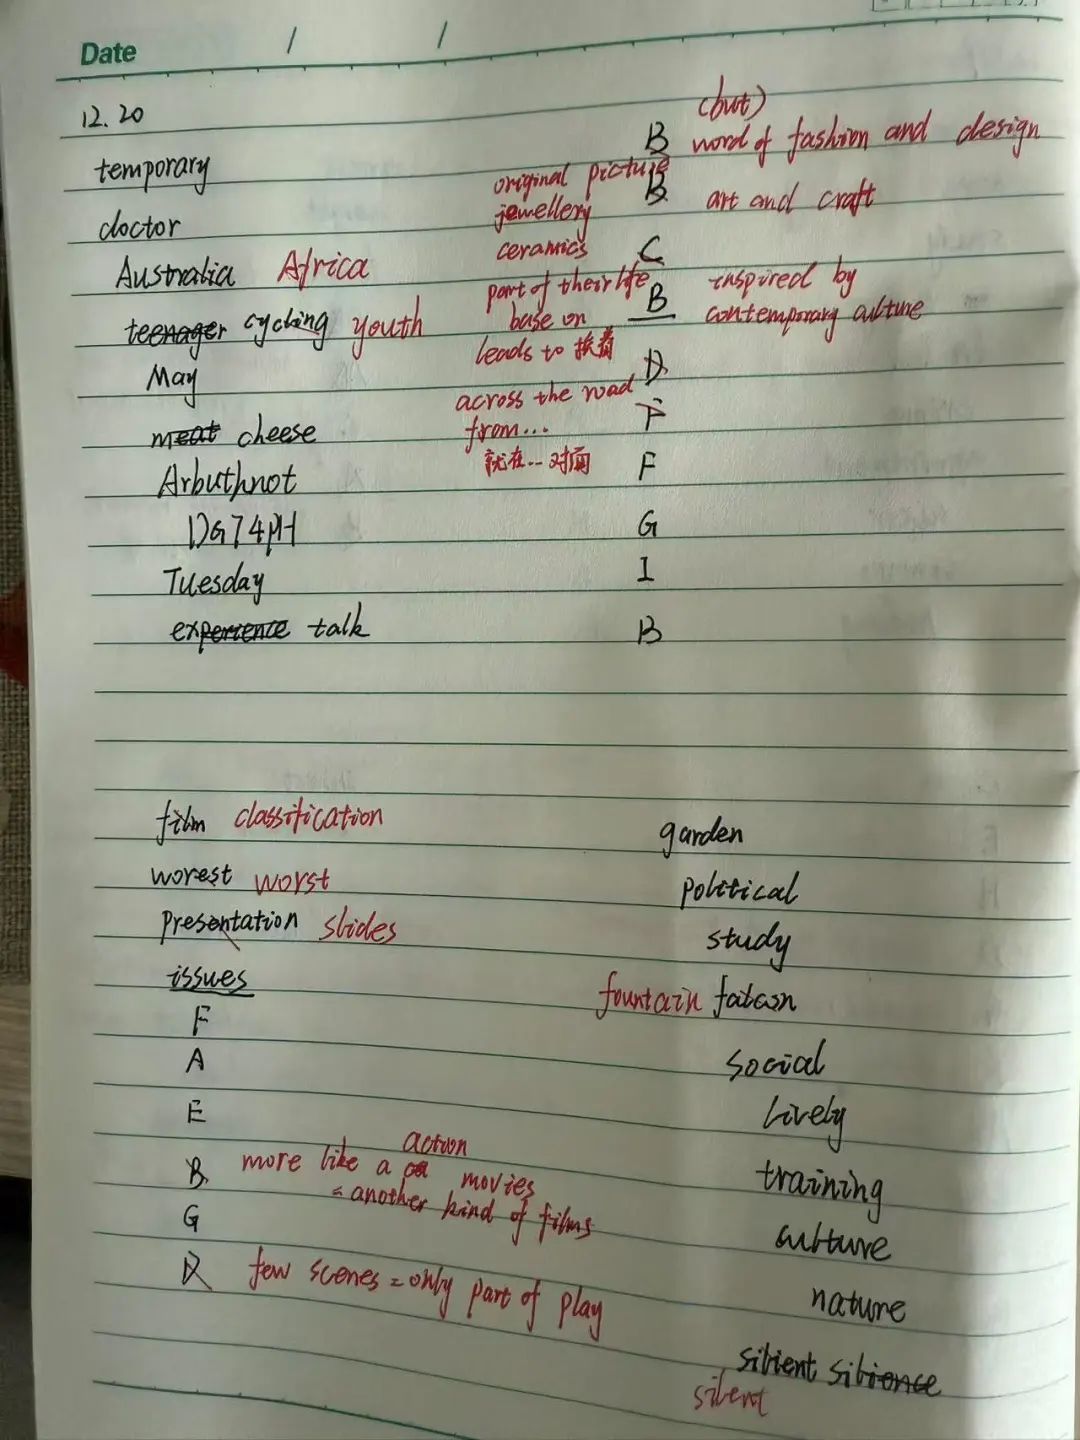 Date / /
12.20
temporary
doctor
Australia Africa
teenager cycling youth
May
meat cheese
Arbuthnot
DG74PH
Tuesday
experience talk
original picture
jewellery
ceramics
part of their life
base on
leads to 挨着
across the road
from...
就在...对面
(but)
B word of fashion and design
B art and craft
C
B inspired by
contemporary culture
D
F
F
G
I
B
film classification
worest worst
presentation slides
issues
F
A
E
action
B more like a movies
= another kind of films
G
D few scenes = only part of play
garden
political
study
fountain
social
lively
training
culture
nature
silient silience
silent